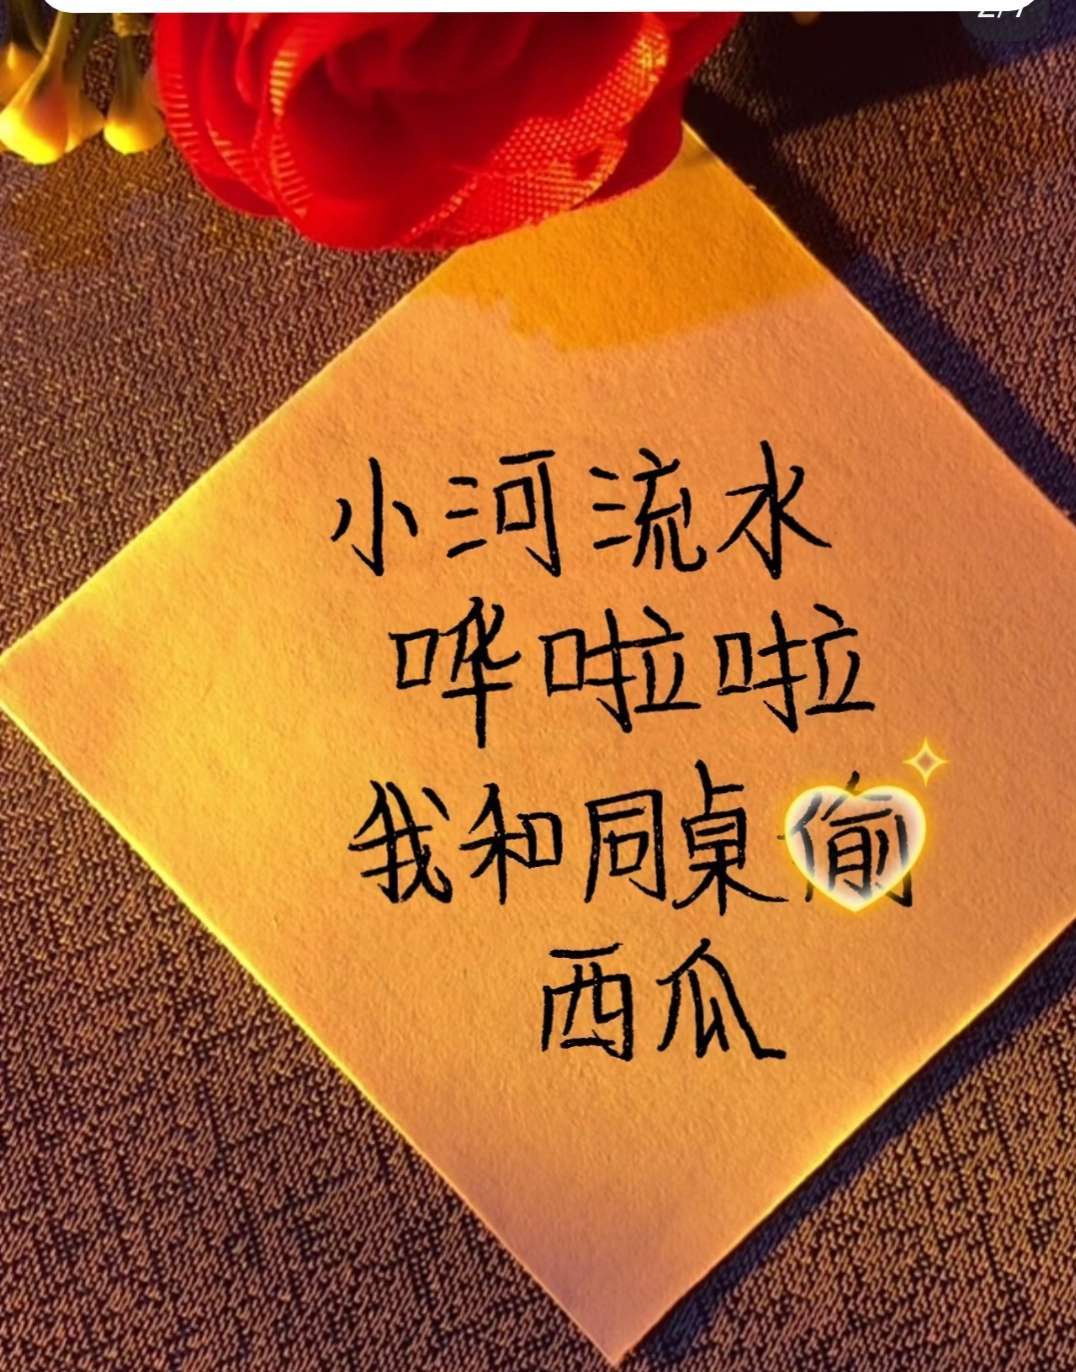 小河流水
哗啦啦
我和同桌偷
西瓜